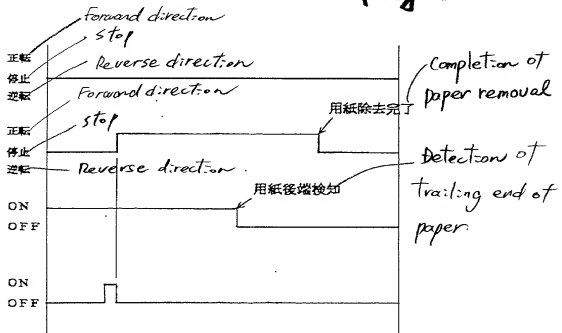 Forward direction
stop
正転
停止
逆転
Reverse direction
Forward direction
stop
正転
停止
逆転
Reverse direction
用紙除去完了
Completion of
paper removal
ON
OFF
用紙後端検知
Detection of
trailing end of
paper
ON
OFF